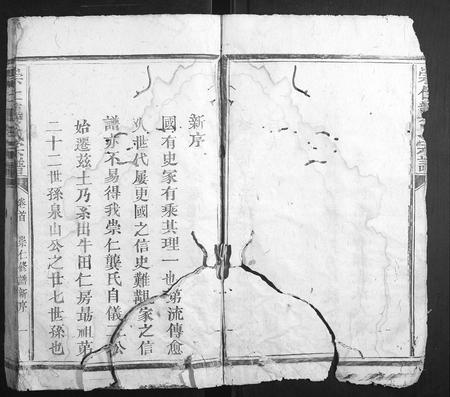 新序
國有史家有乘其理一也第流傳愈
久世代屢更國之信史難覯家之信
譜亦不易得我崇仁龔氏自儀二公
始遷茲土乃系出牛田仁房勗祖第
二十二世孫泉山公之廿七世孫也
崇仁龔氏宗譜
卷首 崇仁修譜新序 一